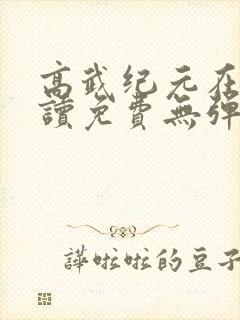 高武纪元在
讀免費無彈
譁啦啦的豆子